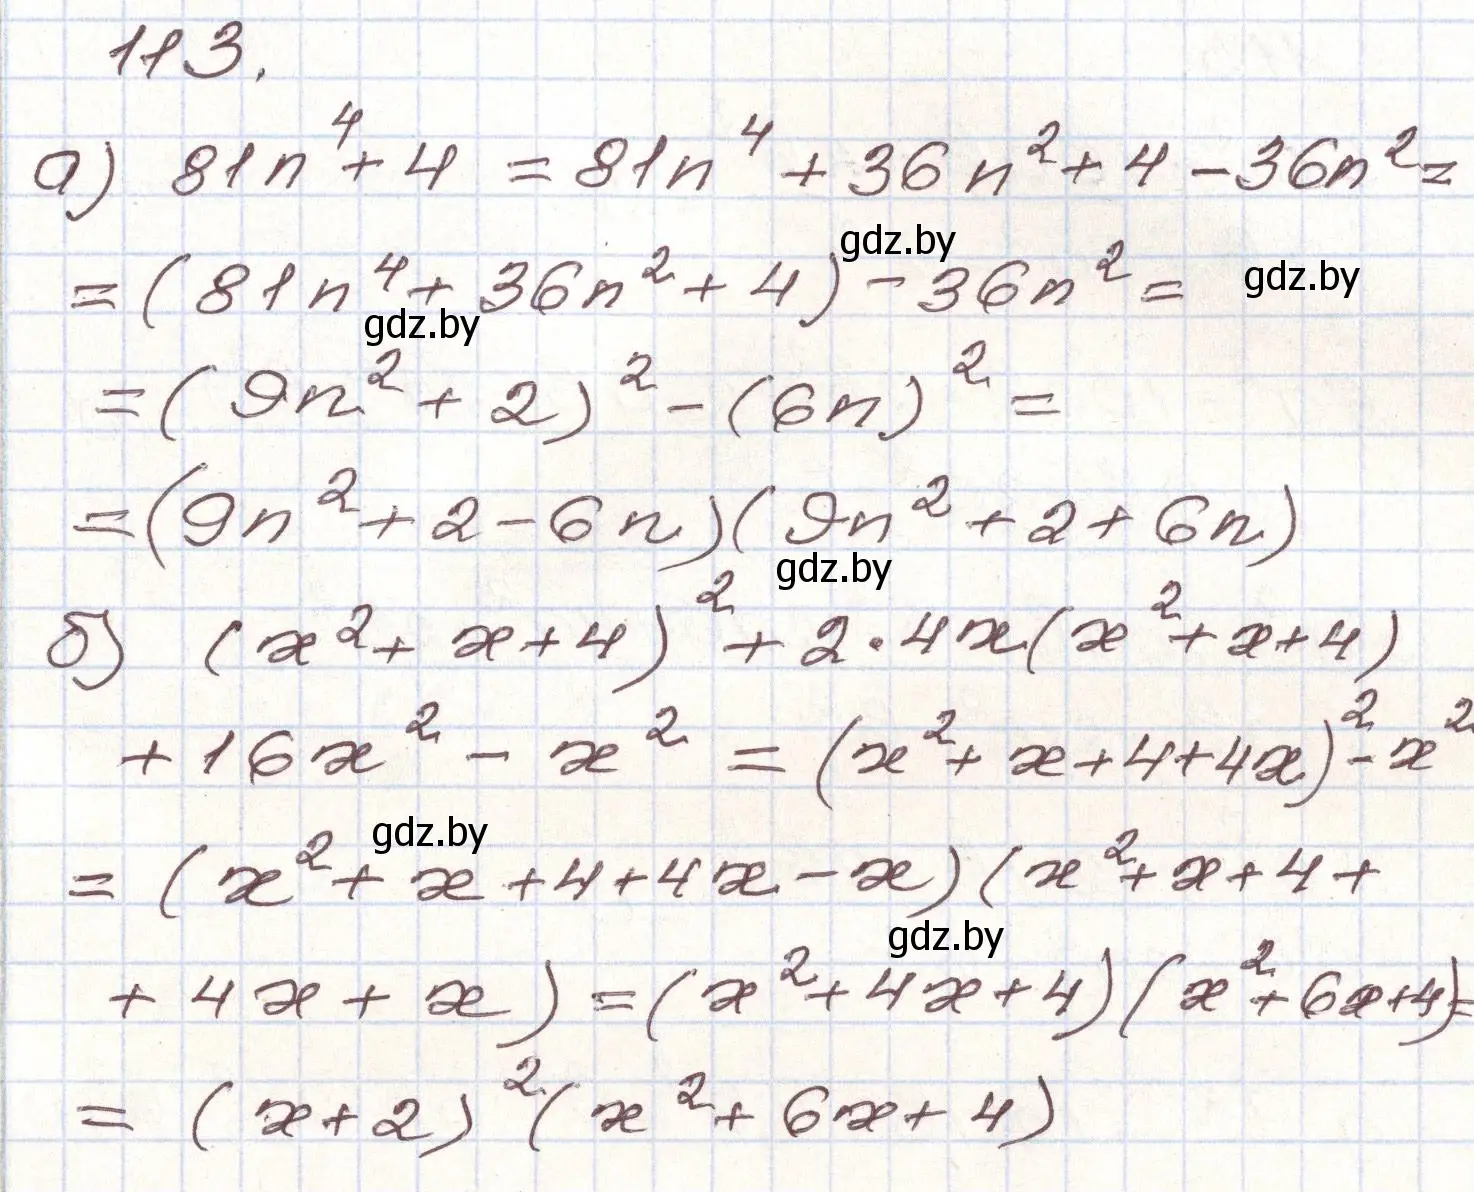 113.
а) 81n⁴ + 4 = 81n⁴ + 36n² + 4 - 36n² =
gdz.by
= (81n⁴ + 36n² + 4) - 36n² =
gdz.by
gdz.by
= (9n² + 2)² - (6n)² =
= (9n² + 2 - 6n)(9n² + 2 + 6n)
gdz.by
б) (x² + x + 4)² + 2 · 4x(x² + x + 4)
+ 16x² - x² = (x² + x + 4 + 4x)² - x²
gdz.by
= (x² + x + 4 + 4x - x)(x² + x + 4 +
gdz.by
+ 4x + x) = (x² + 4x + 4)(x² + 6x + 4) =
= (x + 2)²(x² + 6x + 4)